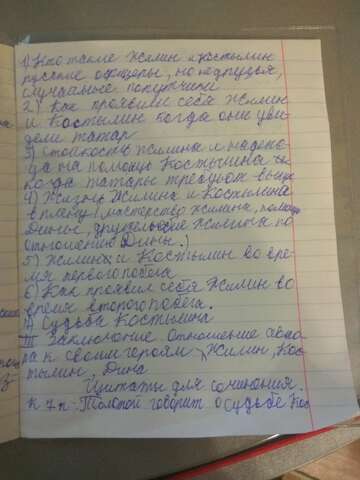 1) Кто такие Жилин и Костылин
русские офицеры, но не друзья,
случайные попутчики
2) Как проявили себя Жилин
и Костылин когда они уви
дели татар
3) Стойкость Жилина и надеж
да на помощь Костылина
когда татары требуют выкуп
4) Жизнь Жилина и Костылина
в плену (мастерство Жилина, помощь
Дины, Жилина по
отношению Дины.)
5) Жилин и Костылин во вре
мя первого побега
6) Как проявил себя Жилин во
время второго побега.
7) Судьба Костылина
III Заключение Отношение авто
ра к своим героям Жилин, Кос
тылин, Дина
Цитаты для сочинения.
К 7 п- Толстой говорит о судьбе Кос